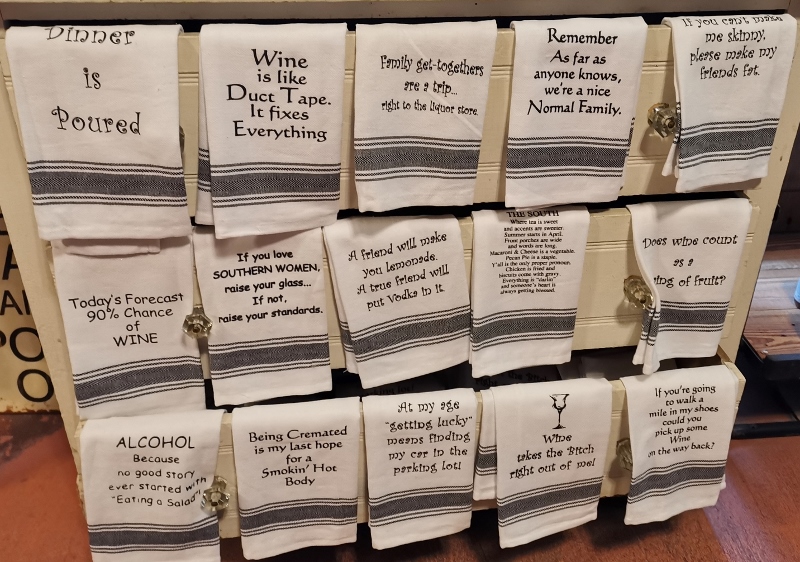 Dinner
is
Poured
Wine
is like
Duct Tape.
It fixes
Everything
Family get-togethers
are a trip...
right to the liquor store.
Remember
As far as
anyone knows,
we're a nice
Normal Family.
If you can't make
me skinny,
please make my
friends fat.
Today's Forecast
90% Chance
of
WINE
If you love
SOUTHERN WOMEN,
raise your glass...
If not,
raise your standards.
A friend will make
you Lemonade.
A true friend will
put Vodka in it.
THE SOUTH
Where tea is sweet
and accents are sweeter.
Summer starts in April.
Front porches are wide
and words are long.
Macaroni & Cheese is a vegetable.
Pecan Pie is a staple.
Y'all is the only proper pronoun.
Chicken is fried and
biscuits come with gravy.
Everything is "darlin'"
and someone's heart is
always getting blessed.
Does wine count
as a
ing of fruit?
ALCOHOL
Because
no good story
ever started with
"Eating a Salad"
Being Cremated
is my last hope
for a
Smokin' Hot
Body
At my age
"getting lucky"
means finding
my car in the
parking lot!
Wine
takes the Bitch
right out of me!
If you're going
to walk a
mile in my shoes
could you
pick up some
Wine
on the way back?
PO
O